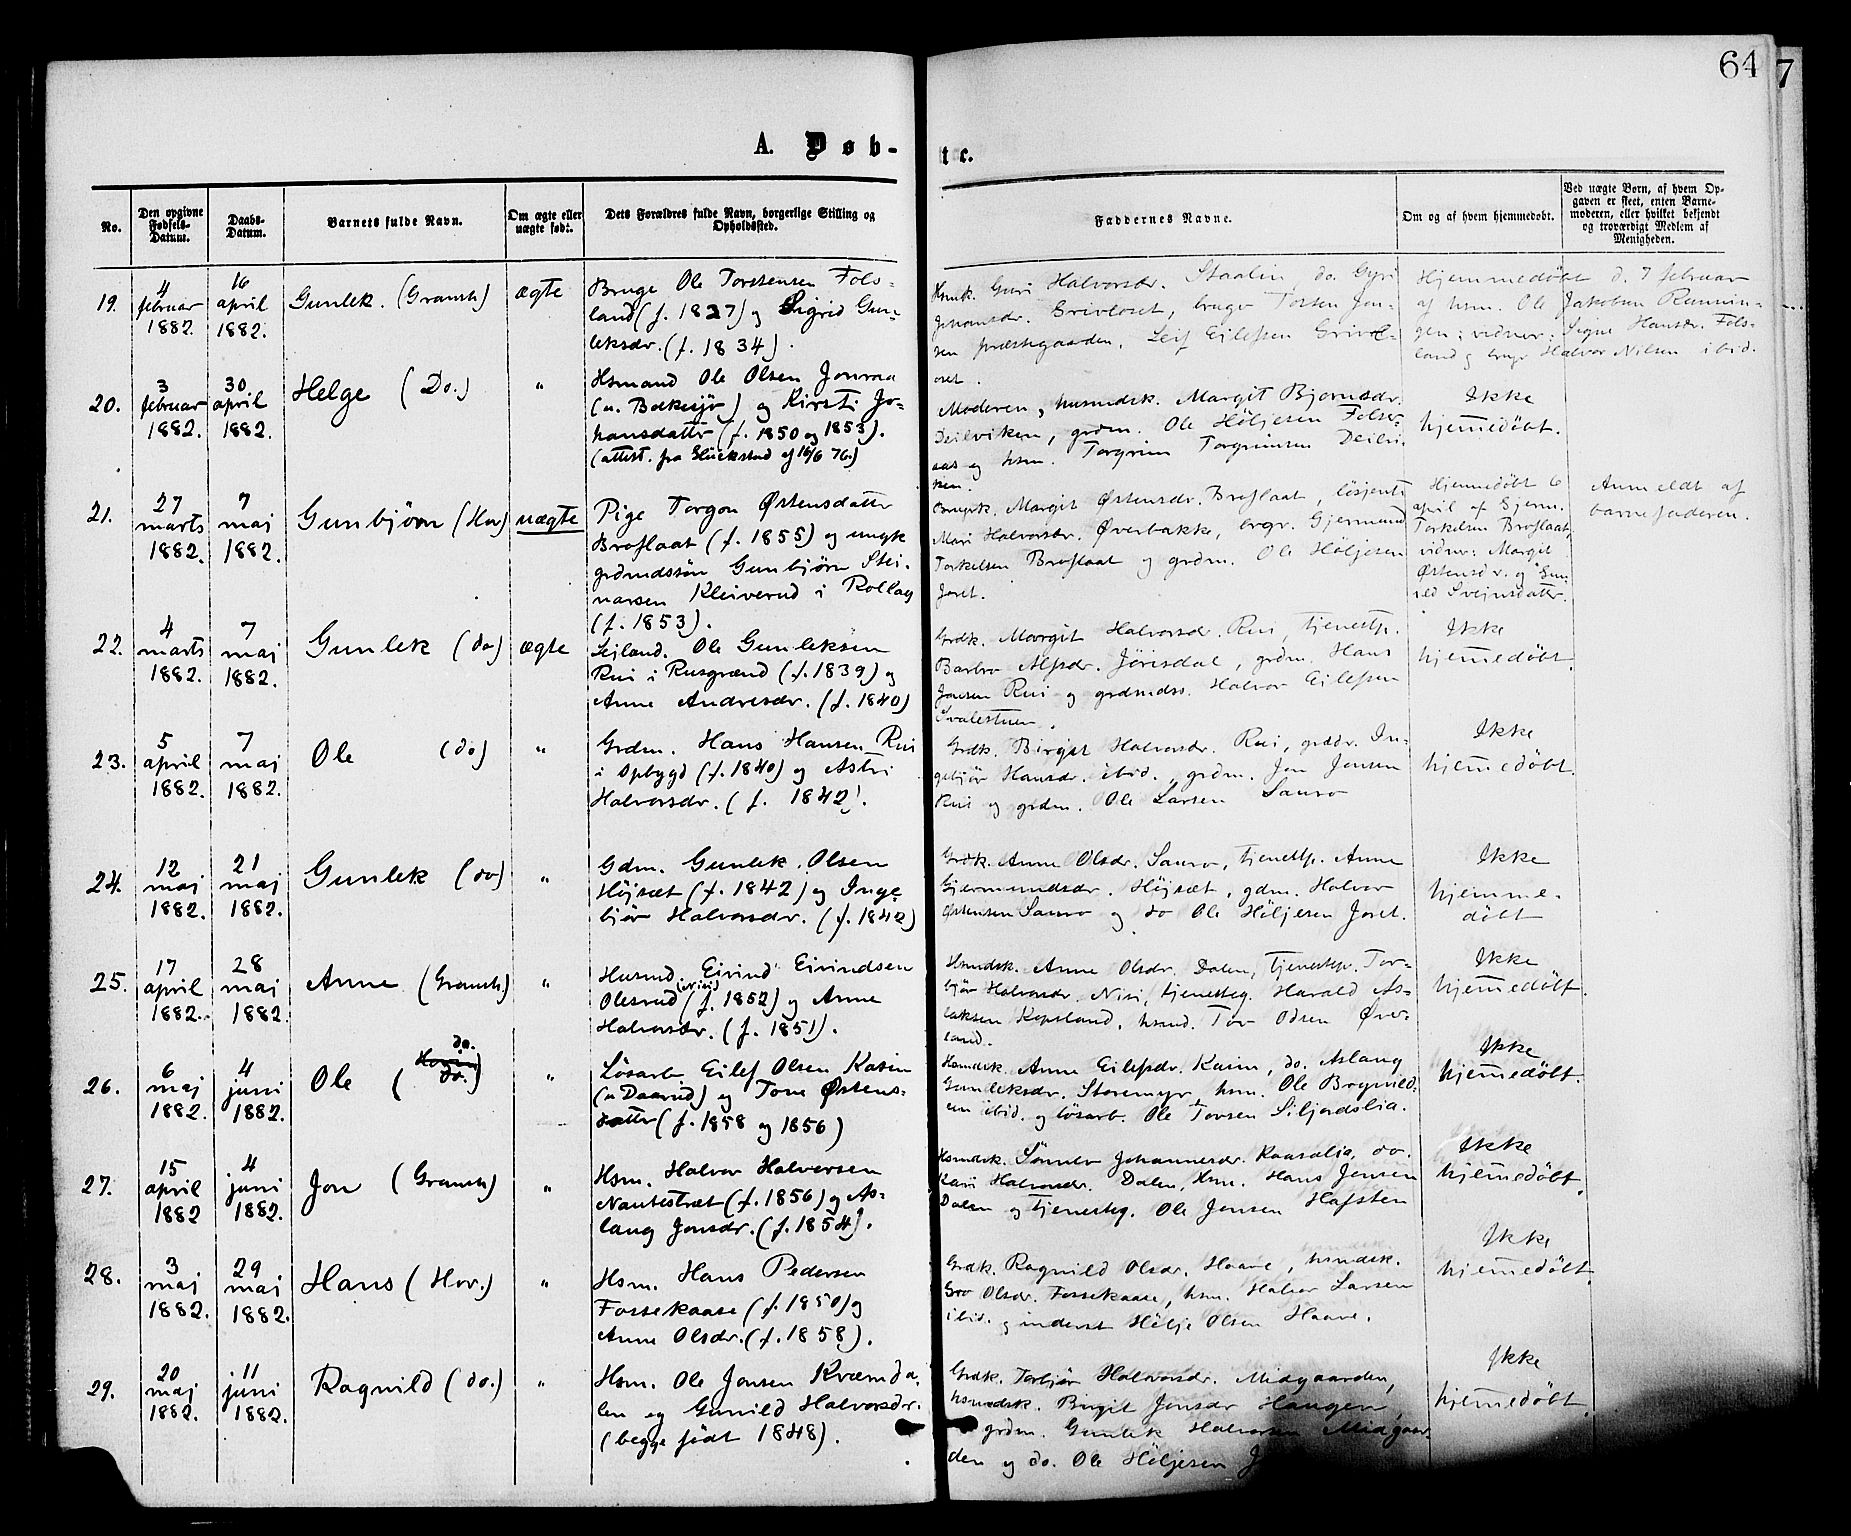 64
7
A. Døb-
te.
No.
Den opgivne Fødsels-Datum.
Daabs-Datum.
Barnets fulde Navn.
Om ægte eller uægte født.
Dets Forældres fulde Navn, borgerlige Stilling og Opholdssted.
Faddernes Navne.
Om og af hvem hjemmedøbt.
Ved uægte Børn, af hvem Opgaven er skeet, enten Barnemoderen, eller hvilket bekjendt og troværdigt Medlem af Menigheden.
19.
4 februar 1882.
16 april 1882.
Gunlek. (Gransh.)
ægte
Bruge Ole Torstensen Fols-
land (f. 1827) og Sigrid Gun-
leksdr. (f. 1834).
Hsmk. Guri Halvorsdr. Staalin do. Gyri
Johansdr. Grivloset, bruge Torsen Jon-
sen præstegaarden, Leif Eilefsen Grivl-
oset.
Hjemmedøbt d. 7 februar
af hsm. Ole Jakobsen Rennin-
gen; vidner: Signe Hansdr. Fols-
land og brugr Halvor Nilsen ibid.
20.
3 februar 1882.
30 april 1882.
Helge (Do.)
"
Hsmand Ole Olsen Jonraa
(u. Bolkesjø) og Kirsti Jo-
hansdatter (f. 1850 og 1853).
(attest. fra Glückstad af 16/6 76.)
Moderen, husmdsk. Margit Bjørnsdr.
Deilviken, grdm. Ole Høljesen Folser-
aas og hsm. Torgrim Torgrimsen Deilvi-
ken.
Ikke
hjemmedøbt.
21.
27 marts 1882.
7 maj 1882.
Gunbjørn (Hov)
uægte
Pige Torgon Østensdatter
Broflaat (f. 1855) og ungk
grdmdssøn Gunbjørn Stei-
narsen Kleiverud i Rollag
(f. 1853).
Brugrk. Margit Østensdr. Broflaat, løsjente
Mari Halvorsdr. Øverbakke, brgr. Gjermund
Torkelsen Broflaat og grdm. Ole Høljesen
Joret.
Hjemmedøbt 6
april af Gjerm.
Torkelsen Broflaat,
vidner: Margit
Østensdr. og Gun-
ild Svejnsdatter.
Anmeldt af
barnefaderen.
22.
4 marts 1882.
7 maj 1882.
Gunlek (do)
ægte
Lejland. Ole Gunleksen
Rui i Rusgrænd (f. 1839) og
Anne Andresdr. (f. 1840)
Grdk. Margit Halvorsdr. Rui, tjenestp.
Barbro Alfsdr. Jørisdal, grdm. Hans
Jonsen Rui og grdmdss. Halvor Eilefsen
Svalestuen.
Ikke
hjemmedøbt.
23.
5 april 1882.
7 maj 1882.
Ole (do)
"
Grdm. Hans Hansen Rui
i Opbygd (f. 1840) og Asløi
Halvorsdr. (f. 1842).
Grdk. Birgit Halvorsdr. Rui, grddr. In-
gebjør Hansdr. ibid., grdm. Jon Jonsen
Rui og grdm. Ole Larsen Sauro
Ikke
hjemmedøbt.
24.
12 maj 1882.
21 maj 1882.
Gunlek (do)
"
Gdm. Gunlek Olsen
Højsæt (f. 1842) og Inge-
bjør Halvorsdr. (f. 1842)
Grdk. Anne Olsdr. Sauro, tjenestp. Anne
Gjermundsdr. Højsæt, gdm. Halvor
Østensen Sauro og do Ole Høljesen Joret.
Ikke
hjemme-
døbt
25.
17 april 1882.
28 maj 1882.
Anne (Gransh.)
"
Husmd. Eivind Eivindsen
Olesrud (Nisi) (f. 1852) og Anne
Halvorsdr. (f. 1851).
Hsmdsk. Anne Olsdr. Dalen, tjenestp. Tor-
bjør Halvorsdr. Nisi, tjenesteg. Harald As-
laksen Kopsland, hsmd. Tov Odsen Øve-
land.
Ikke
hjemmedøbt.
26.
6 maj 1882.
4 juni 1882.
Ole (do. do.)
"
Løsarb. Eilef Olsen Kasin
(u Daarud) og Tone Østens-
datter (f. 1858 og 1856)
Hsmdsk. Anne Eilefsdr. Kasin, do. Aslaug
Gunleksdr. Storemyr, hsm. Ole Bognild-
en ibid. og løsarb. Ole Tovsen Siljordslia.
Ikke
hjemmedøbt.
27.
15 april 1882
4 juni 1882.
Jon (Gransh)
"
Hsm. Halvor Halvorsen
Nautestræt (f. 1856) og As-
laug Jonsdr. (f. 1854).
Hsmdsk. Sønnev Johannesdr. Raasalia, do.
Kari Halvorsdr. Dalen, hsm. Hans Jensen
Dalen og tjenesteg. Ole Jensen Hafsten
Ikke
hjemmedøbt.
28.
3 maj 1882.
29 maj 1882.
Hans (Hov.)
"
Hsm. Hans Pedersen
Fossekaase (f. 1850) og
Anne Olsdr. (f. 1858).
Grdk. Ragnild Olsdr. Haave, hsmdsk.
Gro Olsdr. Fossekaase, hsm. Halvor Larsen
ibid. og inderst Hølje Olsen Haave.
Ikke
hjemmedøbt.
29.
20 maj 1882.
11 juni 1882.
Ragnild (do.)
"
Hsm. Ole Jonsen Kvæmda-
len og Gunild Halvorsdr.
(begge født 1848).
Grdk. Torbjør Halvorsdr. Midgaarden,
hsmdsk. Birgit Jonsdr Haugen,
grdm. Gunlek Halvorsen Midgaar-
den og do. Ole Høljesen
Ikke
hjemmedøbt.